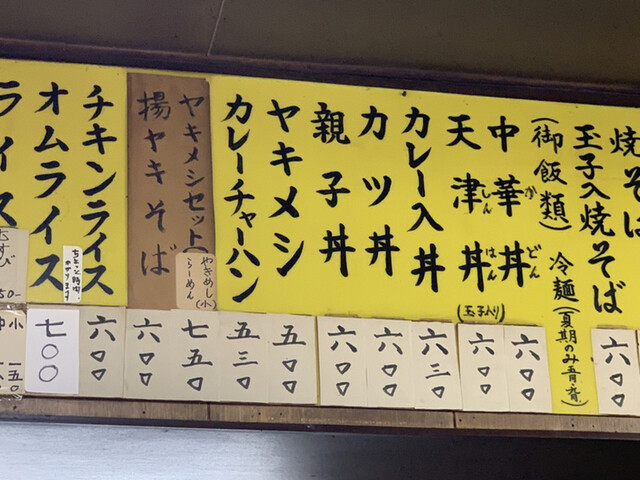 焼そば
六〇〇
玉子入焼そば
冷麺(夏期のみ
(御飯類)
中華丼
か
どん
六〇〇
天津丼
しん
はん
(玉子入り)
六〇〇
カレー入丼
六三〇
カツ丼
六〇〇
親子丼
六〇〇
ヤキメシ
五〇〇
カレーチャーハン
五三〇
ヤキメシセット
やきめし(小)
らーめん
七五〇
揚ヤキそば
六〇〇
チキンライス
六〇〇
オムライス
ちょっと時間
かかります
七〇〇
ライス
むすび
小 一五〇
中